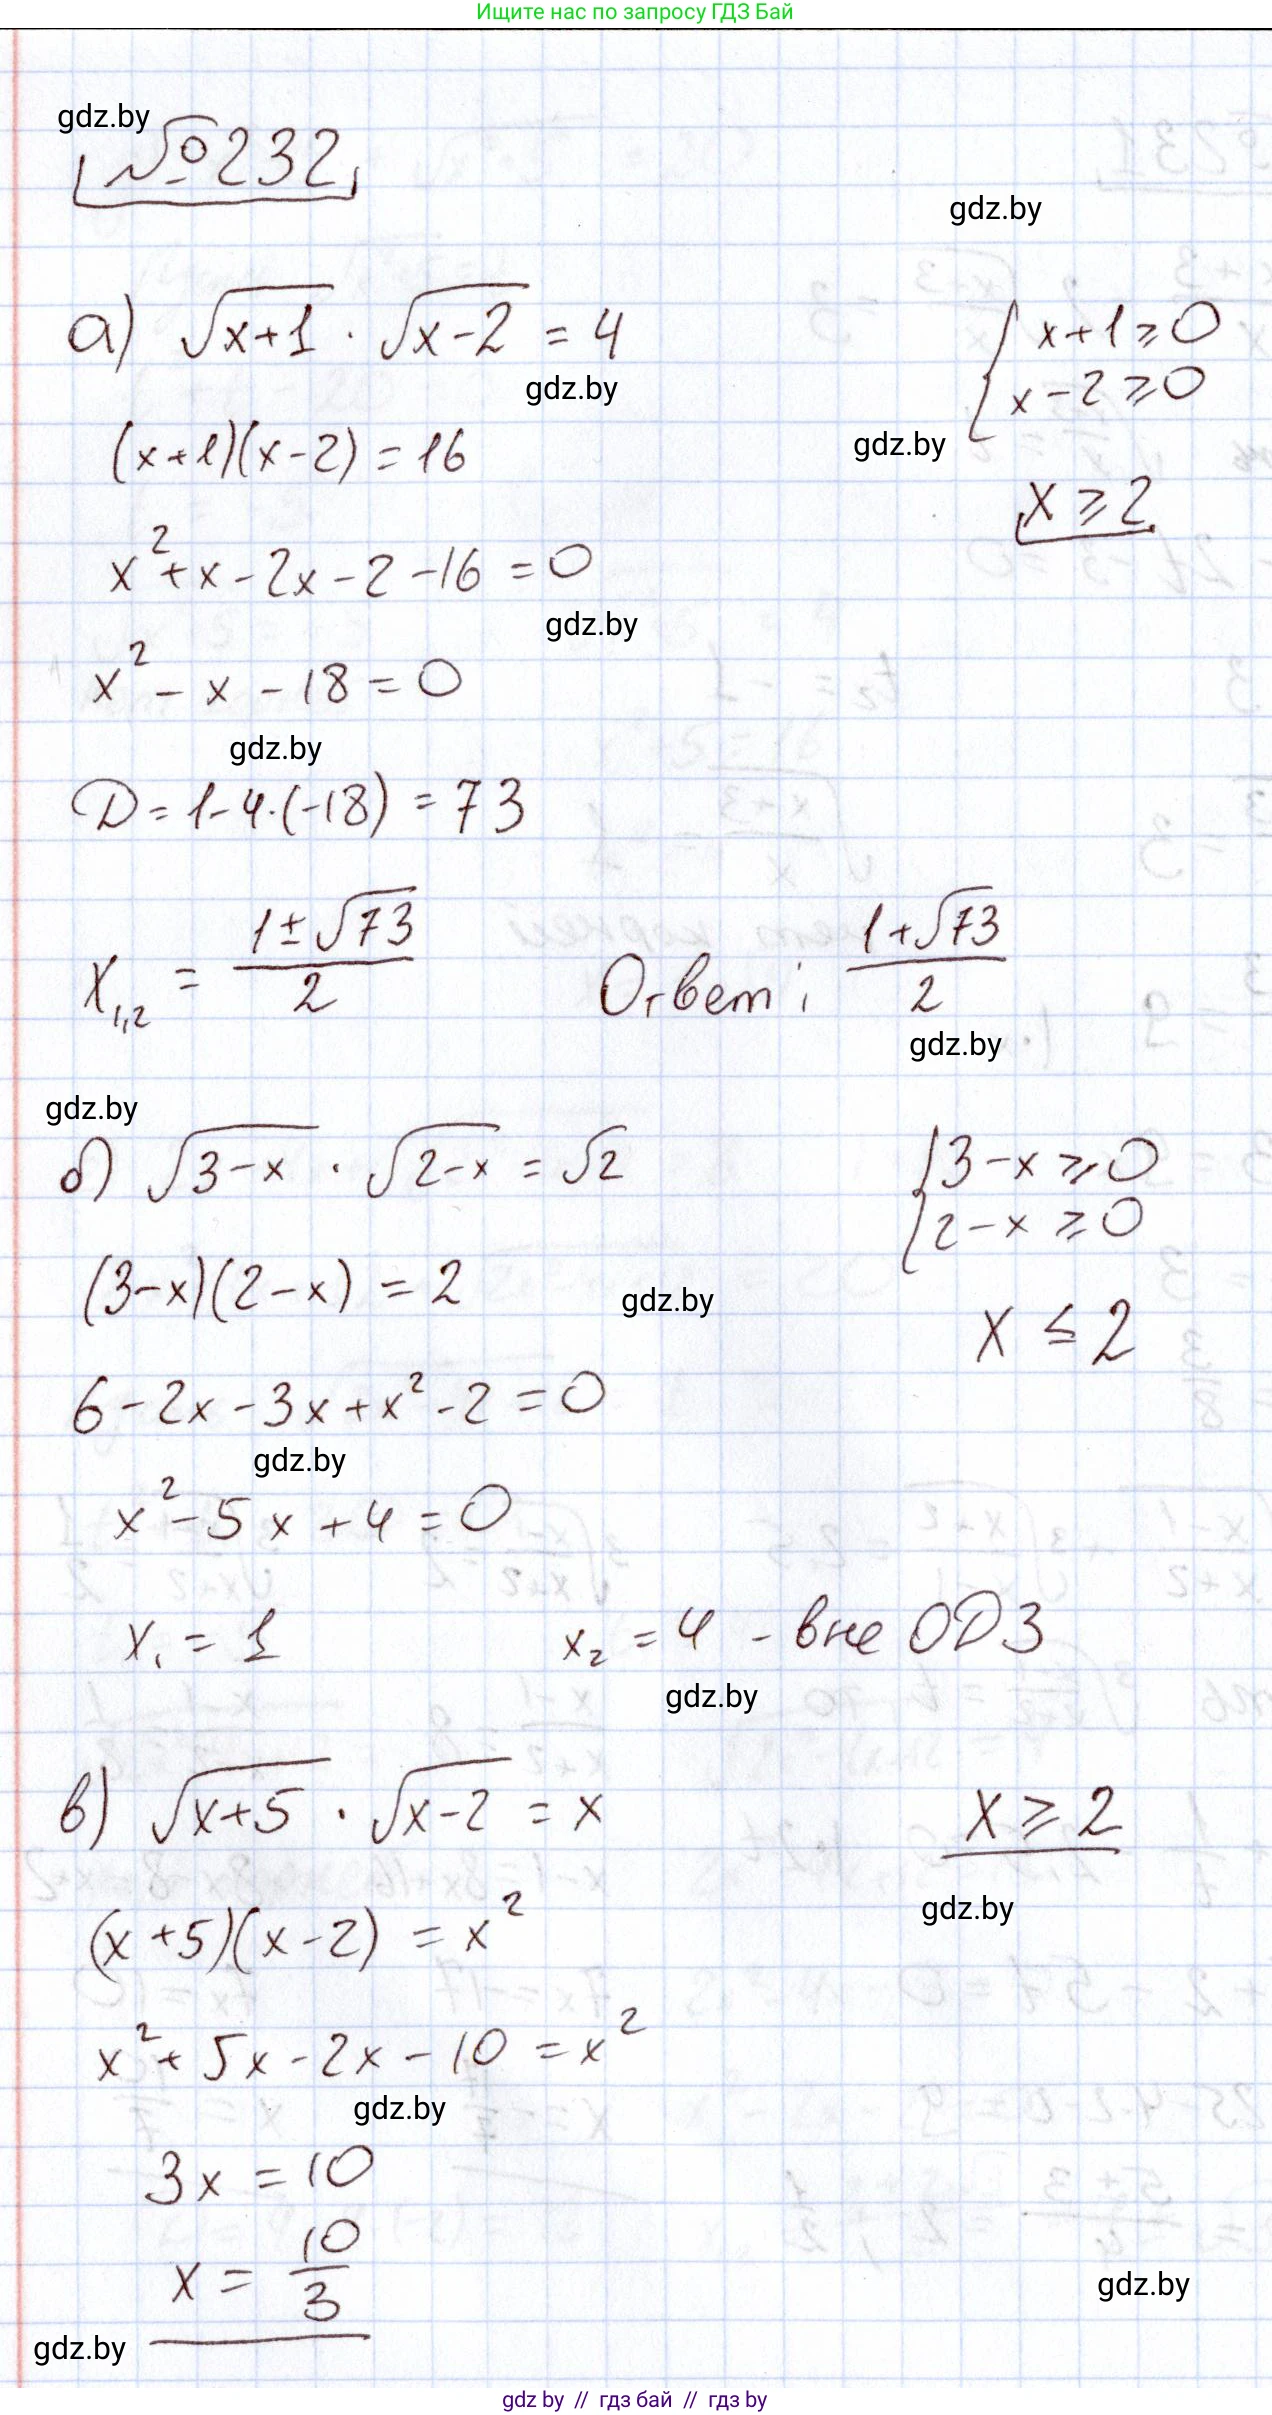 Ищите нас по запросу ГДЗ Бай
gdz.by
№232
gdz.by
а) √(x+1) · √(x-2) = 4
{ x+1 ≥ 0
x-2 ≥ 0
gdz.by
gdz.by
(x+1)(x-2) = 16
x ≥ 2
x² + x - 2x - 2 - 16 = 0
gdz.by
x² - x - 18 = 0
gdz.by
D = 1-4·(-18) = 73
x₁,₂ = (1±√73)/2
Ответ: (1+√73)/2
gdz.by
gdz.by
б) √(3-x) · √(2-x) = √2
{ 3-x ≥ 0
2-x ≥ 0
(3-x)(2-x) = 2
gdz.by
x ≤ 2
6 - 2x - 3x + x² - 2 = 0
gdz.by
x² - 5x + 4 = 0
x₁ = 1
x₂ = 4 - вне ОДЗ
gdz.by
в) √(x+5) · √(x-2) = x
x ≥ 2
gdz.by
(x+5)(x-2) = x²
x² + 5x - 2x - 10 = x²
gdz.by
3x = 10
x = 10/3
gdz.by
gdz.by
gdz by // гдз бай // гдз by